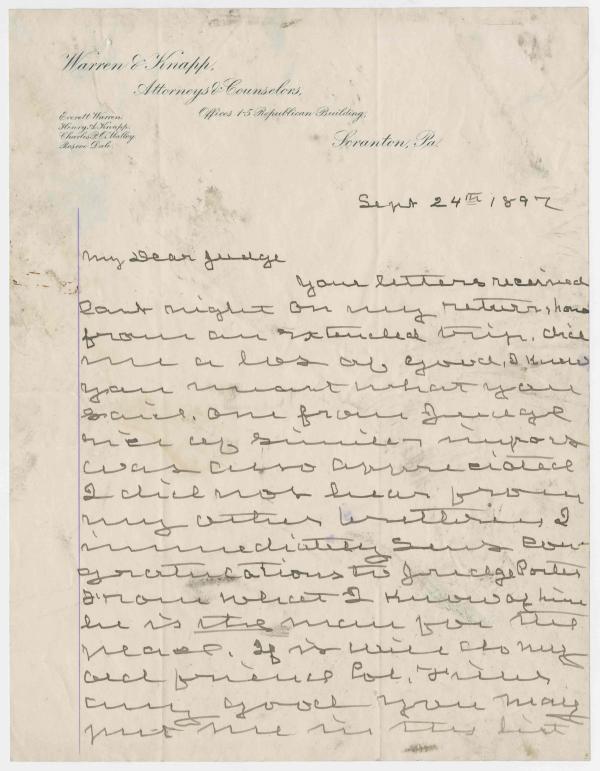 Warren & Knapp,
Attorneys & Counselors,
Offices 1-5 Republican Building,
Everett Warren.
Henry A. Knapp.
Charles P. O'Malley.
Roscoe Dale.
Scranton, Pa.
Sept 24th 1897
My Dear Judge
Your letters received
last night on my return home
from an extended trip. did
me a lot of good, I know
you meant what you
said. One from Judge
Rice of similar import
was also appreciated
I did not hear from
my other brethren, I
immediately sent Con-
gratulations to Judge Porter
From what I know of him
he is the man for the
place. If it will do my
old friend Col.
any good you may
put me in the list